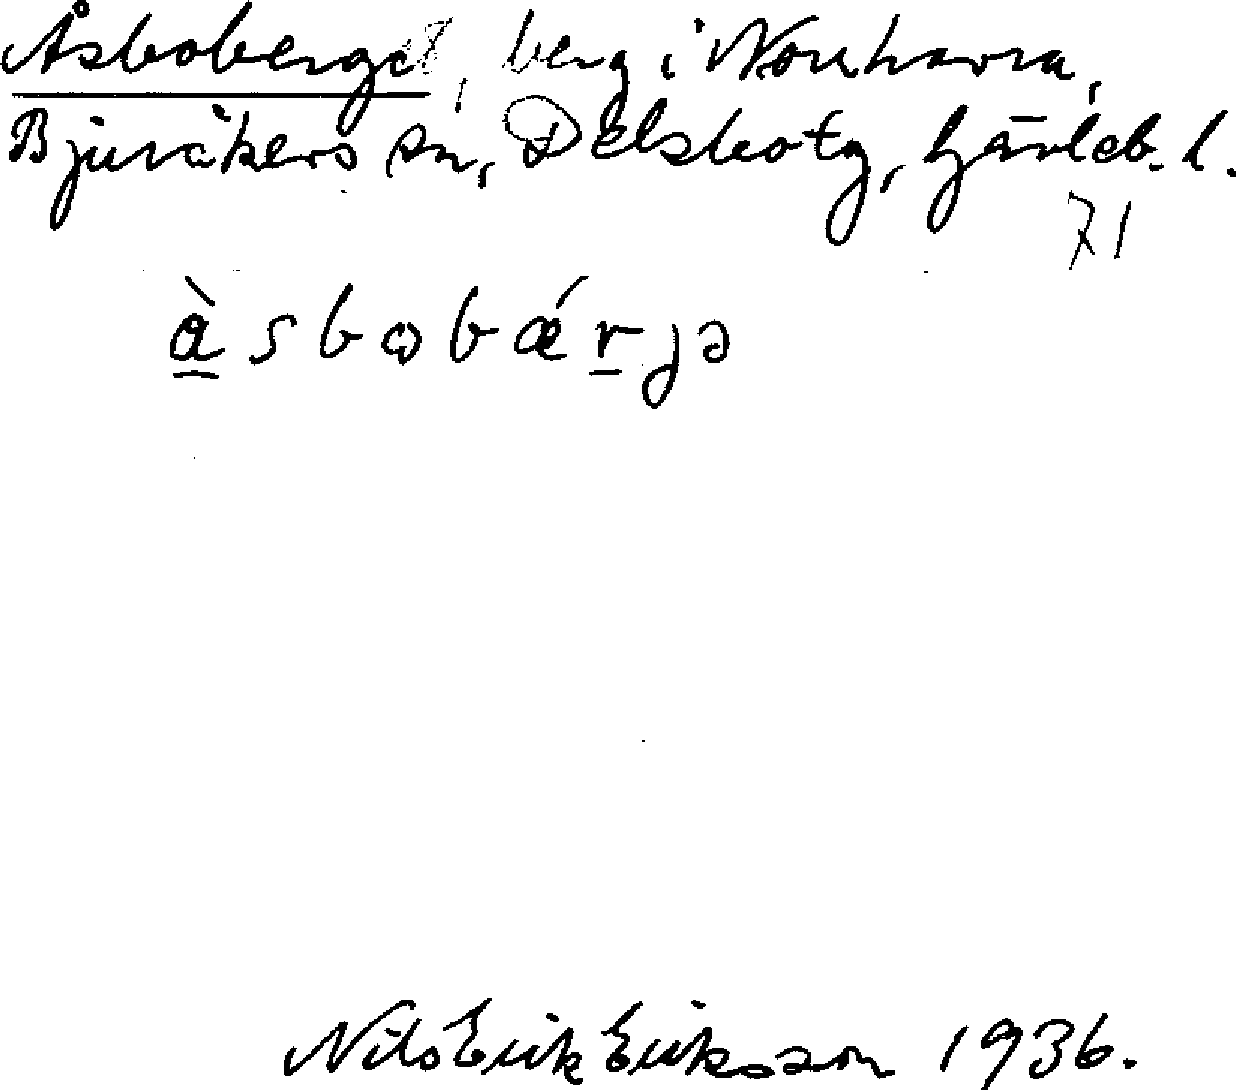 Åsboberget, berg i Norrhavra,
Bjuråkers sn, Delsbo tg, Gävleb. l.
71
à̳ s b ω b ǽ r̲ ȷ ə
Nils Erik Eriksson 1936.